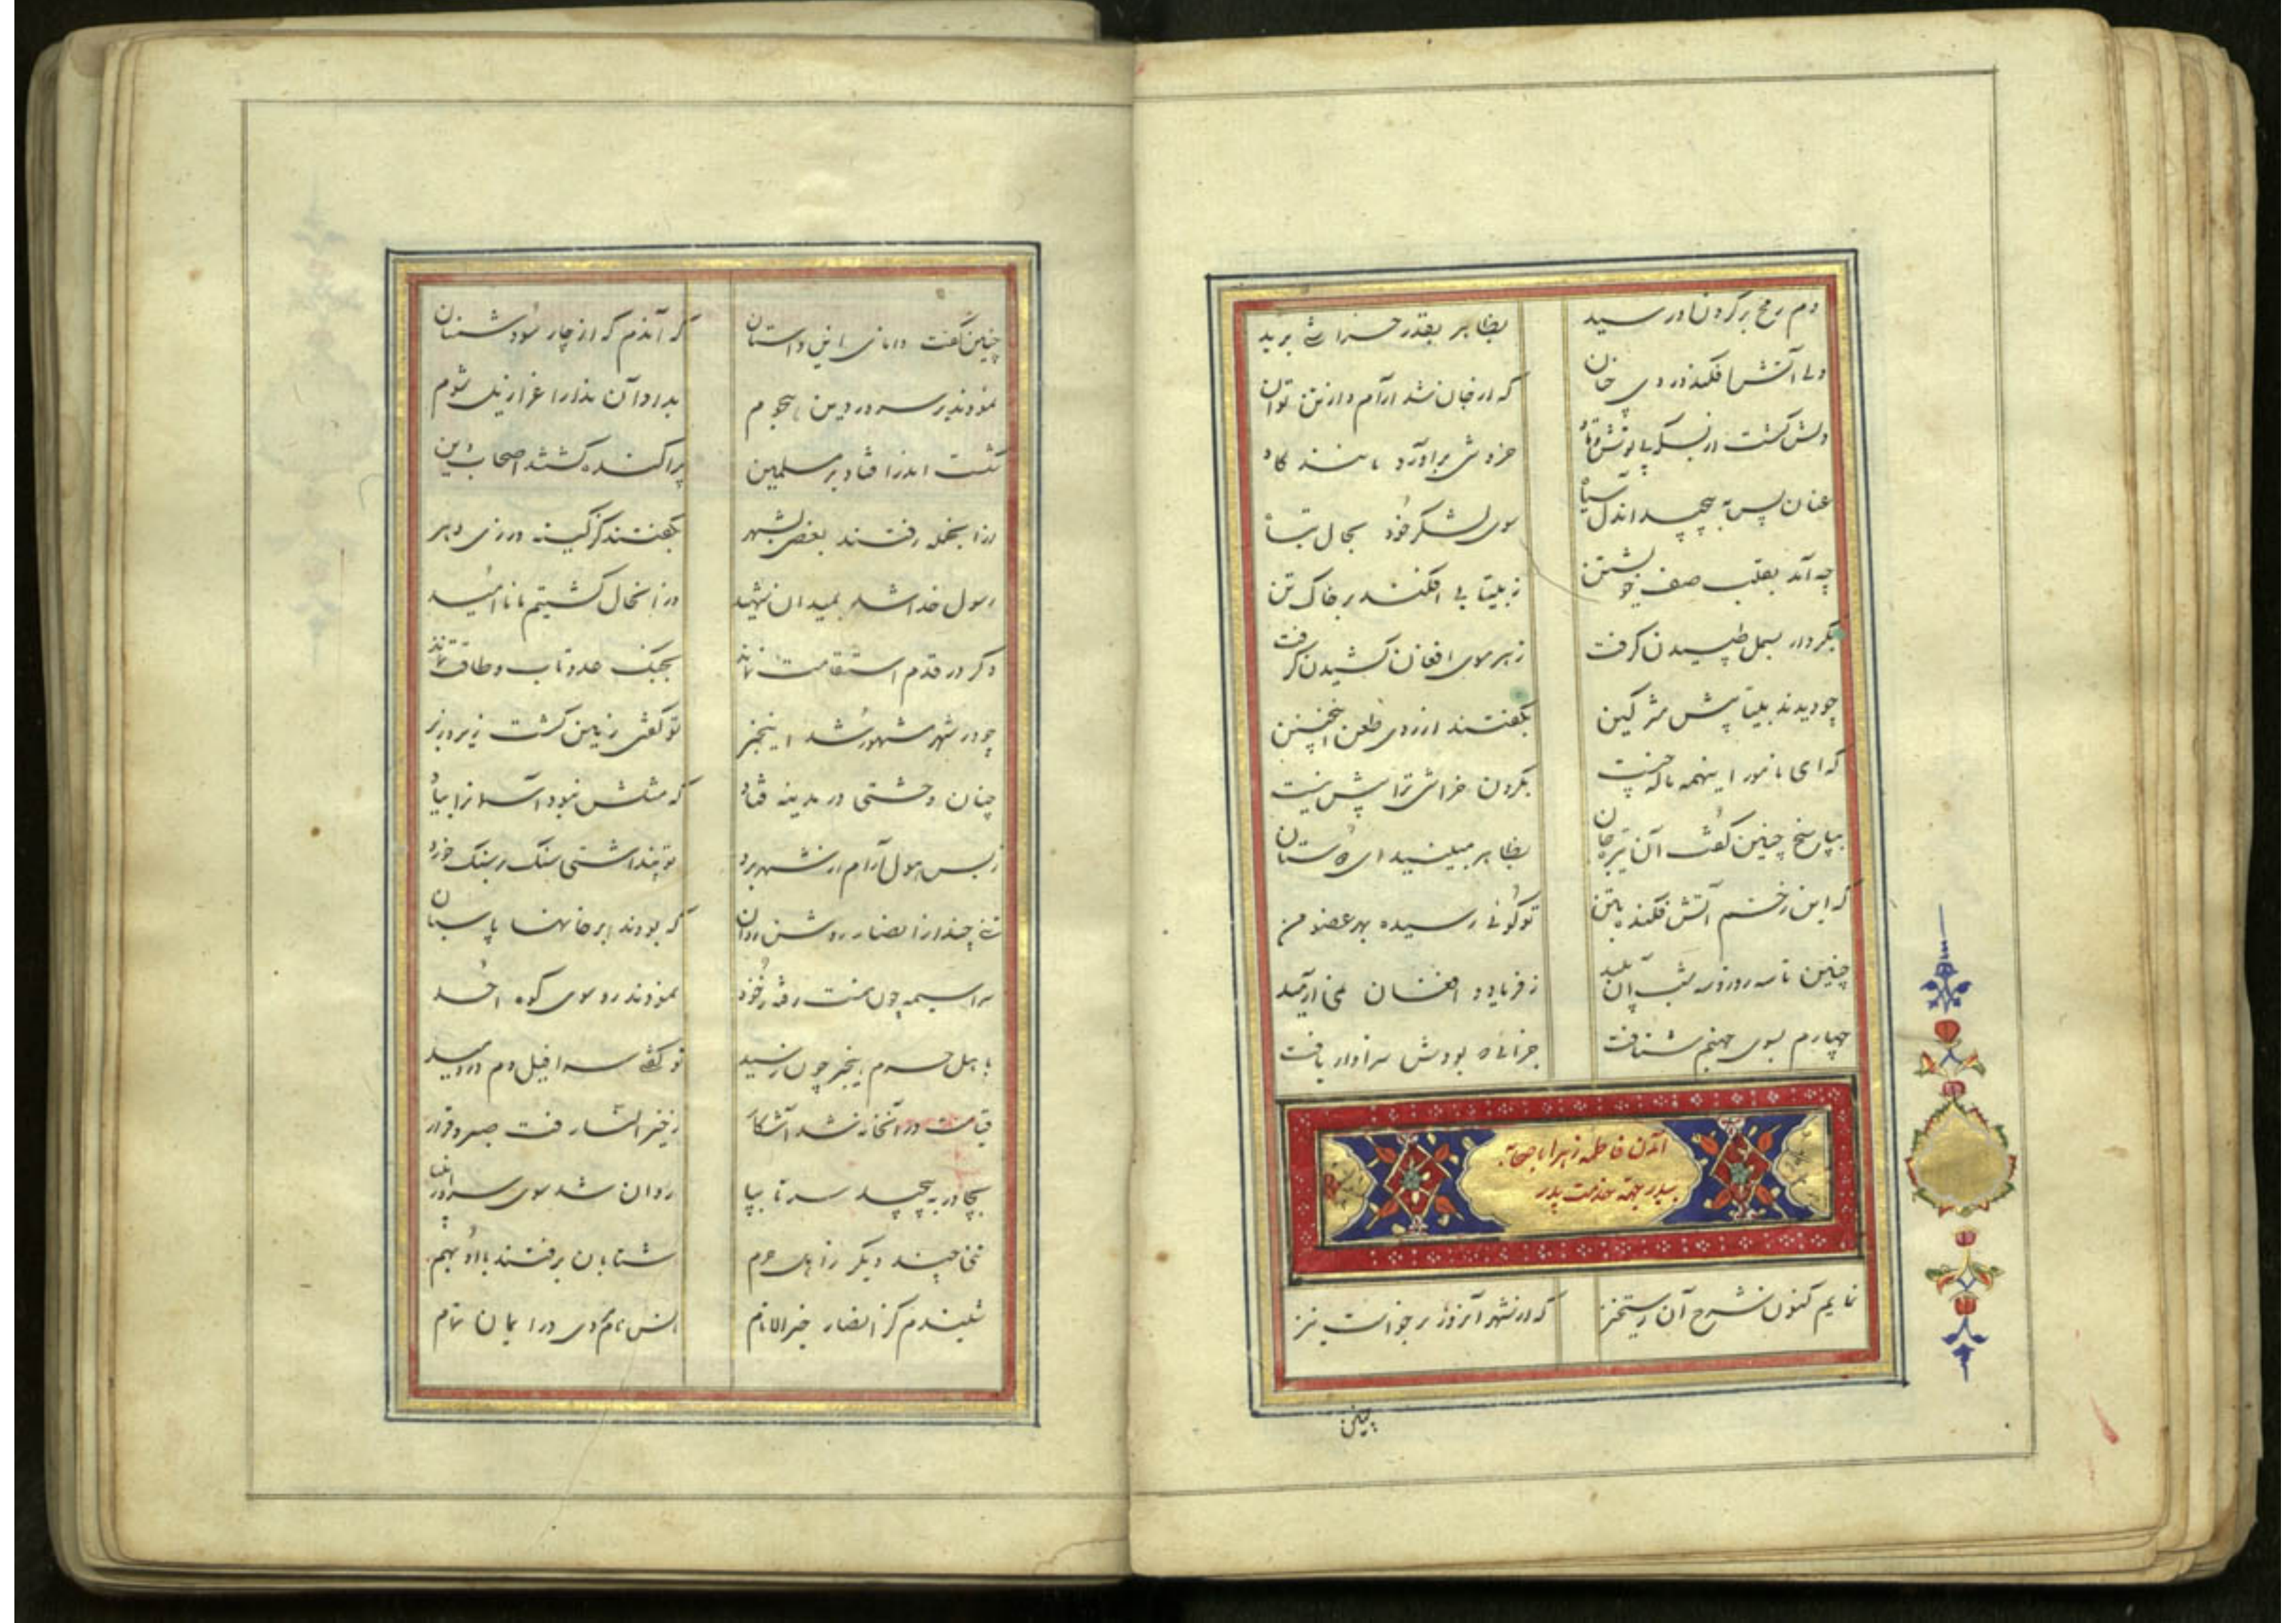 دم رمح بر گردن او رسید بظاهر بقدر خراشی برید
ولی آتش افکند در وی چنان که از جان شد آرام و از تن توان
دلش گشت از بس که پر خروشی برآورد مانند گاو
عنان پس به پیچید آندل سیاه سوی لشکر خود بحال تباه
چه آمد بقلب صف خویشتن ز بیتابی افکند بر خاک تن
بکردار بسمل طپیدن گرفت ز هر موی افغان کشیدن گرفت
چو دیدند بیتابیش مشرکین بگفتند از روی طعن اینچنین
که ای نامور اینهمه ناله چیست بگردن خراشی ترا بیش نیست
بپاسخ چنین گفت آن تیره جان بظاهر مبینید ای دوستان
که این زخم آتش فکنده بتن تو گوئی رسیده بهر عضو من
چنین تا سه روز و سه شب آن پلید ز فریاد و افغان نمی آرمید
چهارم بسوی جهنم شتافت جزائی که بودش سزاوار یافت
آمدن فاطمه زهرا با صفیه
بخدمت پدر
نمایم کنون شرح آن رستخیز که از شهر آنروز برخواست نیز
چنین
چنین گفت دانای این داستان که آندم که از چار سو دشمنان
نمودند بر سرور دین هجوم بد او آن ندا را غرازیل شوم
شکست اندر افتاد بر مسلمین پراکنده گشتند اصحاب دین
از آنجمله رفتند بعضی بشهر بگفتند کز کینه ورزی دهر
رسول خدا شد بمیدان شهید در آنحال گشتیم ما ناامید
دگر در قدم استقامت نماند بجنگ عدو تاب و طاقت نماند
چو در شهر مشهور شد اینخبر تو گفتی زمین گشت زیر و زبر
چنان وحشتی در مدینه فتاد که مثلش نبود آسمانرا بیاد
ز بس هول آرام از شهر برد تو پنداشتی سنگ بر سنگ خورد
تنی چند از انصار روشن روان که بودند بر خانها پاسبان
سراسیمه چون همت رفته ز خود نمودند رو سوی کوه احد
باهل حرم اینخبر چون رسید تو گفتی سرافیل دم در دمید
قیامت در آنخانه شد آشکار ز خیر النسا رفت صبر و قرار
بچادر به پیچید سر تا بپا روان شد سوی سرور انبیا
تنی چند دیگر ز اهل حرم شتابان برفتند با او بهم
شنیدم کز انصار خیر الانام در ایمان تمام